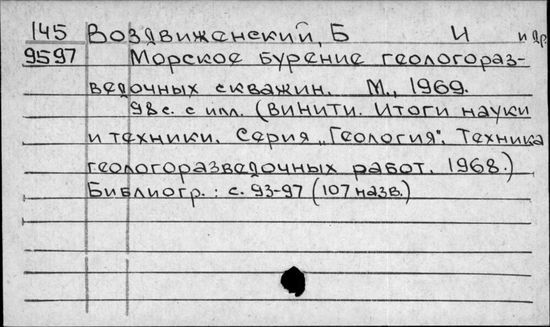 145 Воздвиженский, Б И и др.
9597 Морское бурение геологораз-
ведочных скважин. М., 1969.
98 с. с илл. (ВИНИТИ. Итоги науки
и техники. Серия „Геология". Техника
геологоразведочных работ. 1968.)
Библиогр.: с. 93-97 (107 назв.)